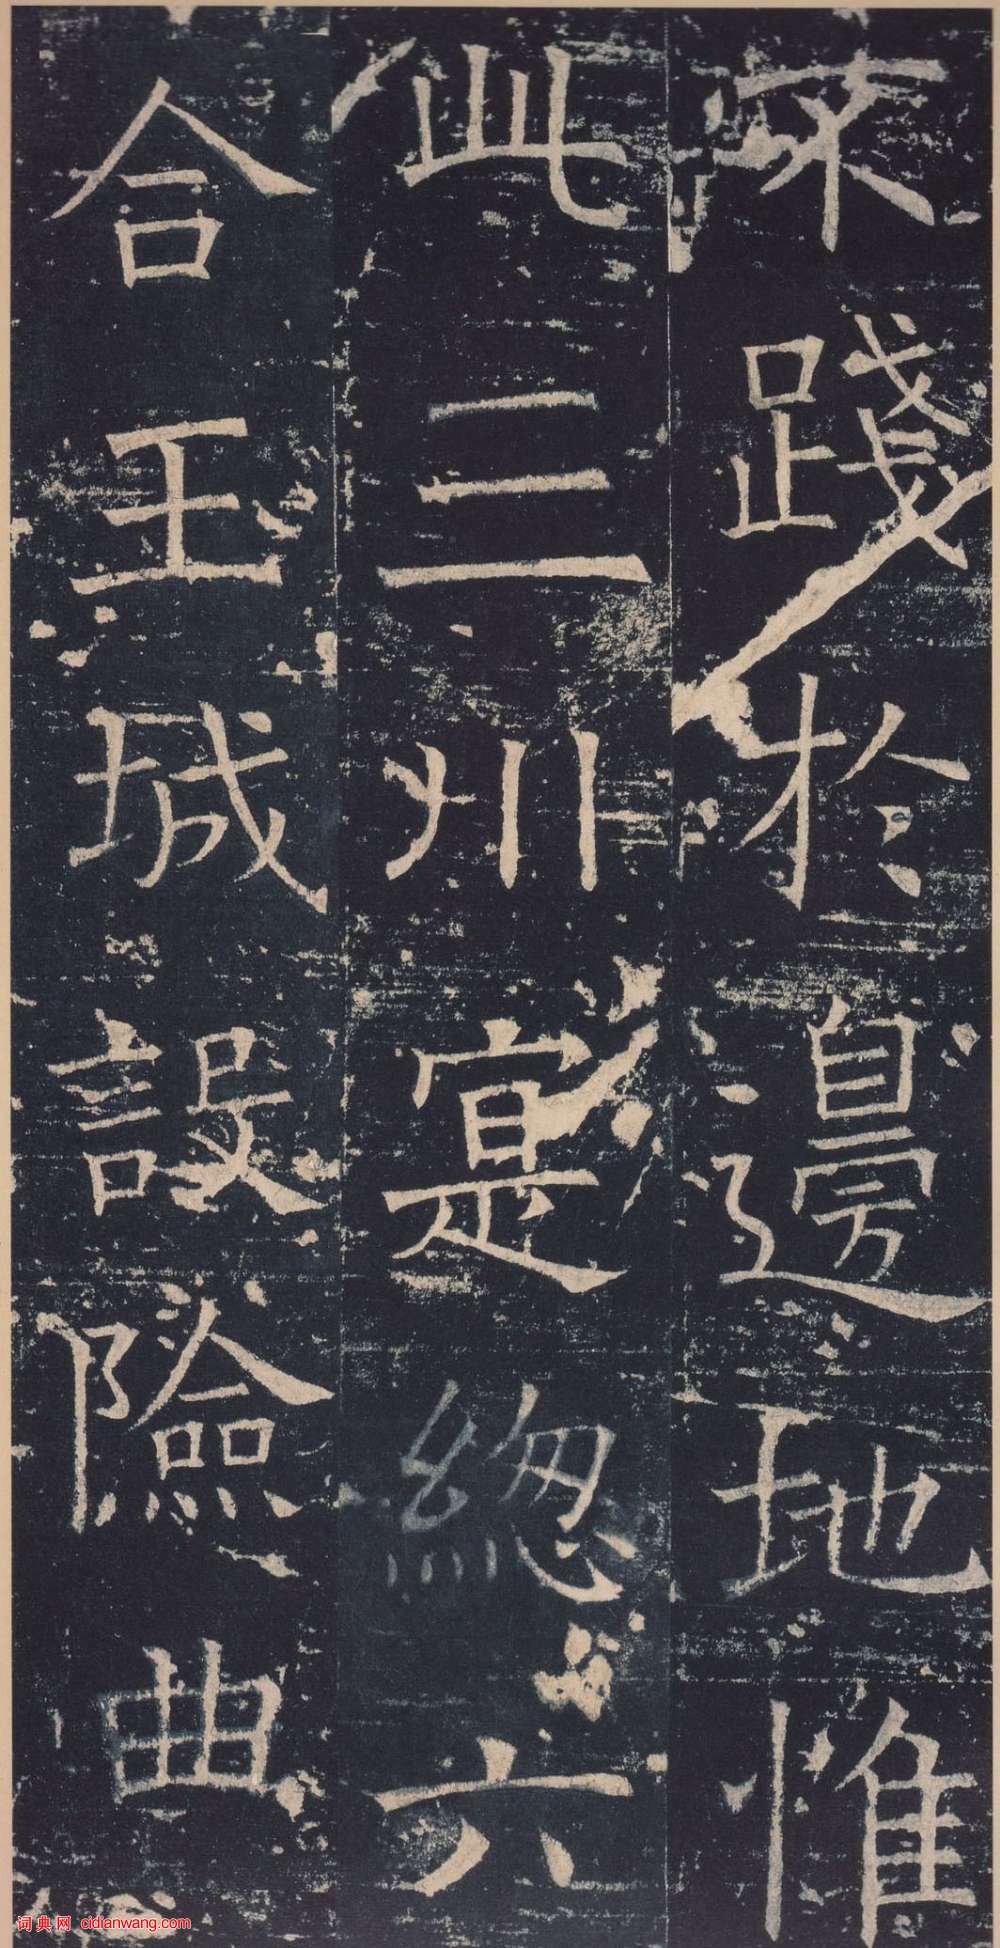 不踐於邊地惟
此三州寔總六
合王城設險曲
词典网 cidianwang.com